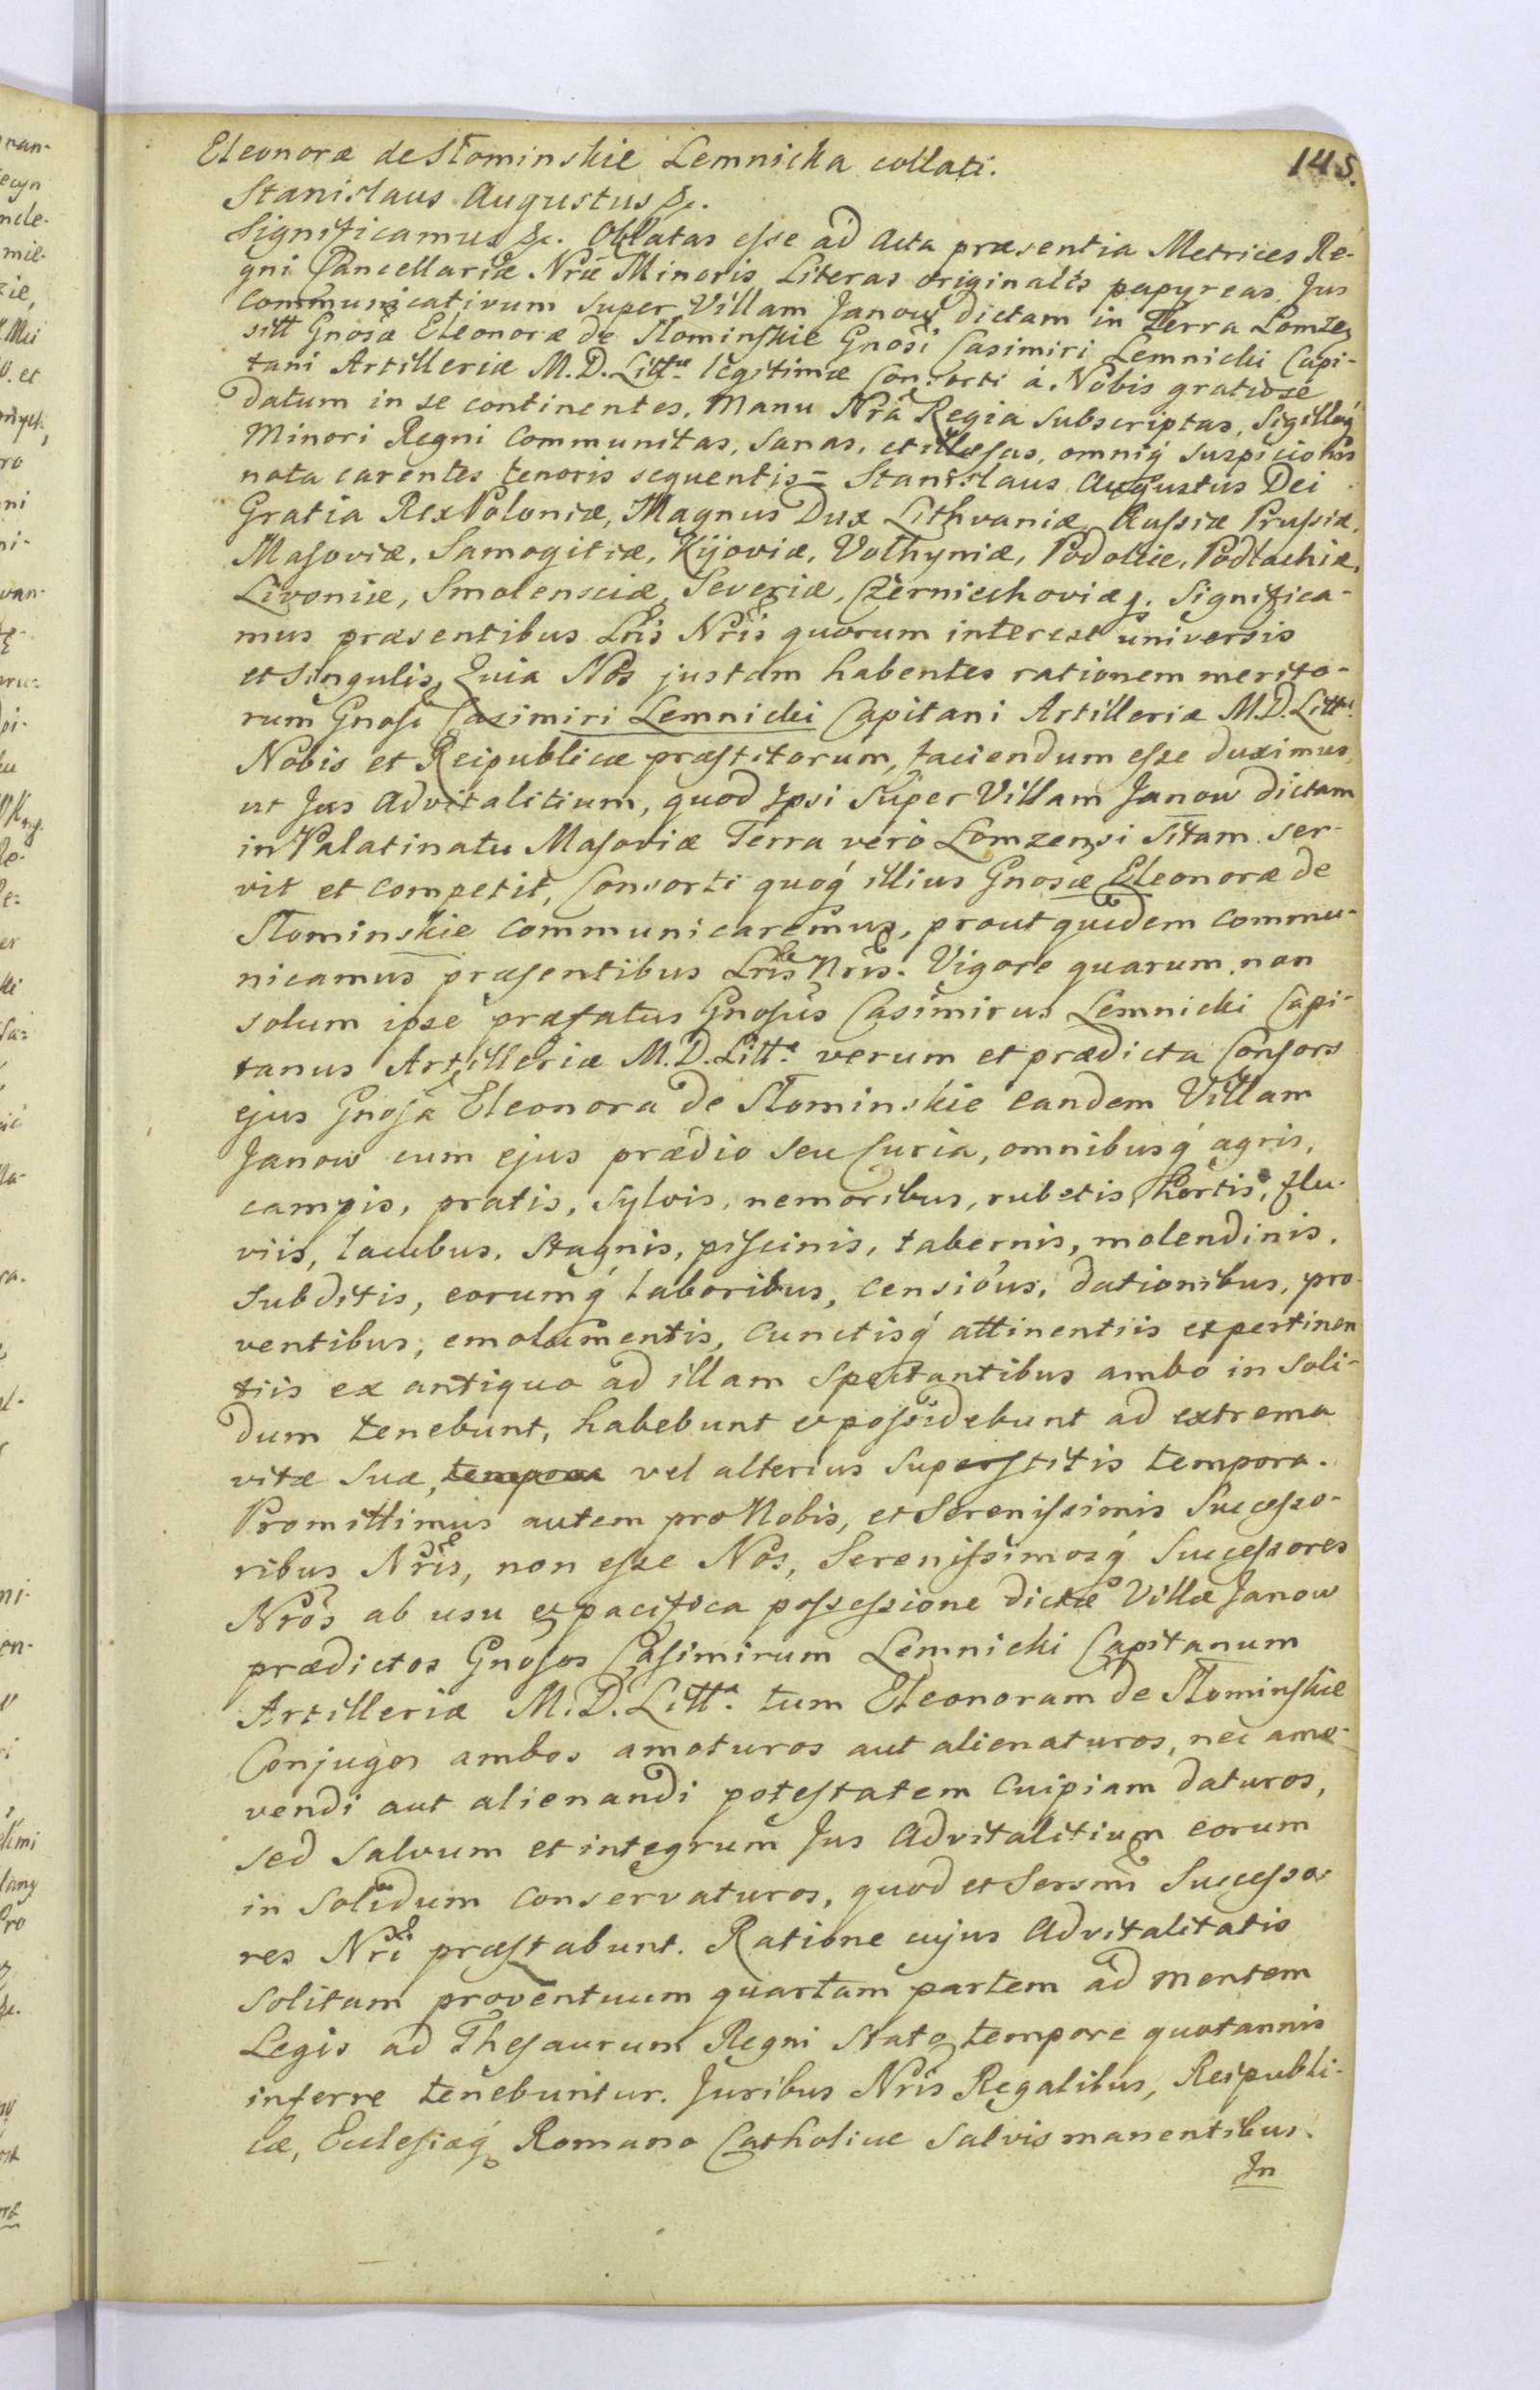 145.
Eleonoræ de Słominskie Lemnicka collati.
Stanislaus Augustus &c.
Significamus &c. Oblatas esse ad Acta præsentia Metrices Re-
gni Cancellariæ Nræ Minoris Literas originales papyreas, Jus
communicativum super Villam Janow dictam in Terra Lomzen
sitt Gnosæ Eleonoræ de Słominskie Gnosi Casimiri Lemnicki Capi-
tani Artilleriæ M. D. Littæ legitimæ Consorti á Nobis gratiose
datum in se continentes, Manu Nrâ Regia subscriptas, Sigilloq́
Minori Regni communitas, sanas, et illæsas, omniq́ suspicionis
nota carentes tenoris sequentis = Stanislaus Augustus Dei
Gratia Rex Poloniæ, Magnus Dux Lithvaniæ Russiæ Prussiæ,
Masoviæ, Samogitiæ, Kijoviæ, Volhyniæ, Podoliæ, Podlachiæ,
Livoniæ, Smolensciæ, Severiæ, Czerniechoviæq. Significa-
mus præsentibus Lris Nris quorum interest universis
et singulis, Quia Nos justam habentes rationem merito-
rum Gnosi Casimiri Lemnicki Capitani Artilleriæ M. D. Litt.
Nobis et Reipublicæ præstitorum, faciendum esse duximus,
ut Jus Advitalitium, quod Ipsi super Villam Janow dictam
in Palatinatu Masoviæ Terra verò Lomzensi sitam ser-
vit et competit, Consorti quoq́ illius Gnosæ Eleonoræ de
Słominskie communicaremus, prout quidem commu-
nicamus præsentibus Lris Nris. Vigore quarum non
solum ipse præfatus Gnosus Casimirus Lemnicki Capi-
tanus Artilleriæ M. D. Litt. verum et prædicta Consors
ejus Gnosa Eleonora de Słominskie eandem Villam
Janow cum ejus prædio seu Curia, omnibusq́ agris,
campis, pratis, sylvis, nemoribus, rubetis, hortis, flu-
viis, lacubus, stagnis, piscinis, tabernis, molendinis,
subditis, eorumq́ laboribus, censibus, dationibus, pro-
ventibus, emolumentis, cunctisq́ attinentiis et pertinen
tiis ex antiquo ad illam spectantibus ambo in soli-
dum tenebunt, habebunt et possidebunt ad extrema
vitæ suæ, tempora vel alterius superstitis tempora.
Promittimus autem pro Nobis, et Serenissimis Successo-
ribus Nris, non esse Nos, Serenissimosq́ Successores
Nros ab usu et pacifica possessione dictæ Villæ Janow
prædictos Gnosos Casimirum Lemnicki Capitanum
Artilleriæ M. D. Litt. tum Eleonoram de Słominskie
Conjuges ambos amoturos aut alienaturos, nec amo-
vendi aut alienandi potestatem cuipiam daturos,
sed salvum et integrum Jus Advitalitium eorum
in solidum conservaturos, quod et Sersmi Successo
res Nri præstabunt. Ratione cujus Advitalitatis
solitam proventuum quartam partem ad mentem
Legis ad Thesaurum Regni stato tempore quotannis
inferre tenebuntur. Juribus Nris Regalibus, Reipubli-
cæ, Eclesiæq́ Romano Catholicæ salvis manentibus.
In